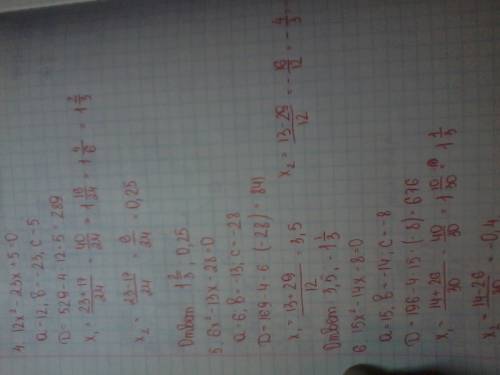 4. 12x² - 23x + 5 = 0
a = 12, b = -23, c = 5
D = 529 - 4·12·5 = 289
x₁ = (23+17)/24 = 40/24 = 1 16/24 = 1 4/6 = 1 2/3
x₂ = (23-17)/24 = 6/24 = 0,25
Ответ 1 2/3 0,25
5. 6x² - 13x - 28 = 0
a = 6, b = -13, c = -28
D = 169 - 4·6·(-28) = 841
x₁ = (13+29)/12 = 3,5 x₂ = (13-29)/12 = -16/12 = -4/3
Ответ 3,5, -1 1/3
6. 15x² - 14x - 8 = 0
a = 15, b = -14, c = -8
D = 196 - 4·15·(-8) = 676
x₁ = (14+26)/30 = 40/30 = 1 10/30 = 1 1/3
x₂ = (14-26)/30 = -0,4